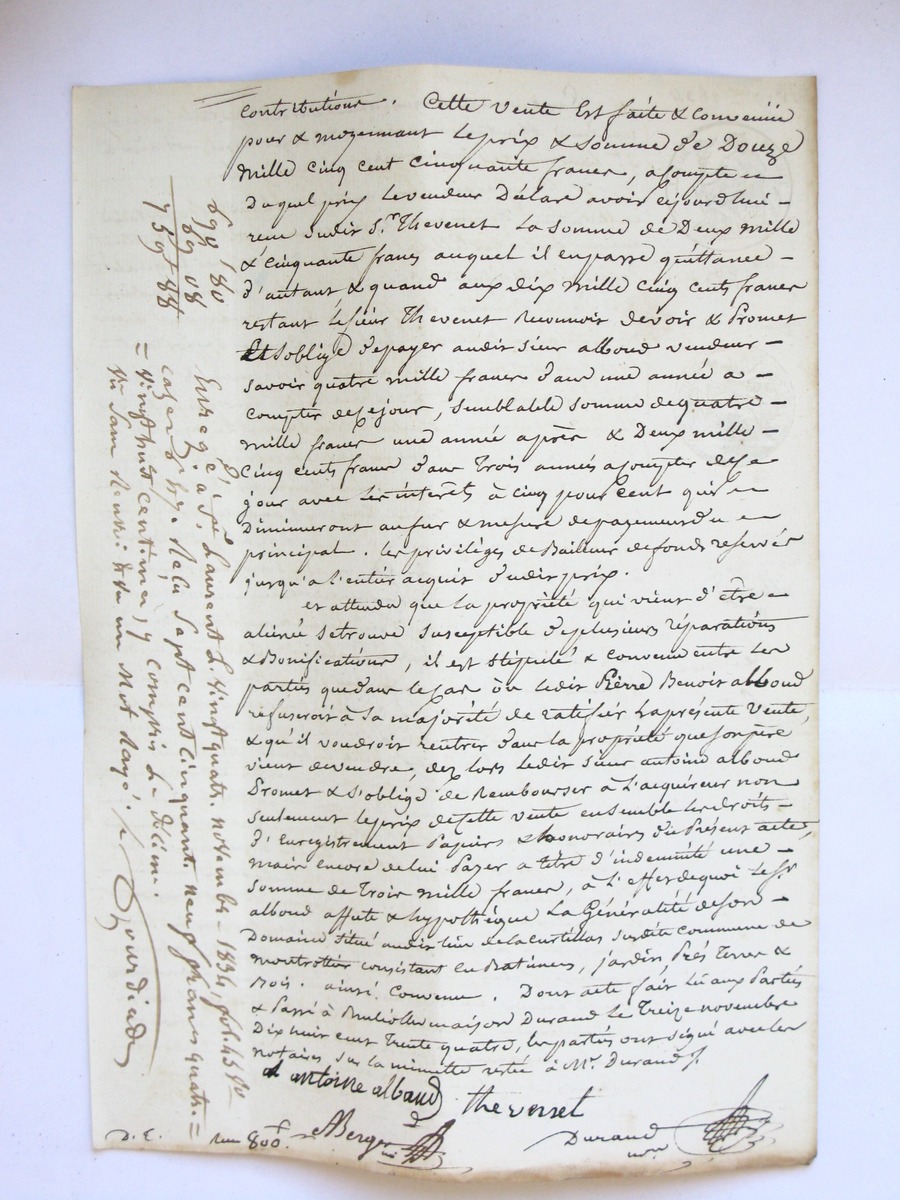 contributions. Cette vente Est faite & convenüe
pour & moyennant le prix & somme de Douze
mille cinq cent cinquante francs, acompte
Duquel prix le vendeur Déclare avoir cejourdhui
reçu dudit Sr. Thevenet La somme de Deux mille
& cinquante francs auquel il en passe quittance
d'autant & quand aux dix mille cinq cents francs
restant le sieur Thevenet Reconnoit devoir & Promet
Et S'oblige de payer audit sieur alboud vendeur
savoir quatre mille francs dans une année a
compter de ce jour, semblable somme de quatre
mille francs une année après & Deux mille
Cinq cents francs dans Trois années acompter de ce
jour avec les interêts à cinq pour cent qui
Diminueront au fur & mesure de payement du
principal. les privilèges de Bailleur de fonds reservés
jusqu'a l'entier acquit dudit prix.
et attendu que la propriété qui vient d'être
aliénée se trouve susceptible de plusieurs réparations
& Bonifications, il est stipulé & convenu entre les
parties que dans le cas où ledit Pierre Benoit alboud
refuseroit à sa majorité de ratifier la présente vente,
& qu'il voudroit rentrer dans la propriété que son père
vient de vendre, dez lors ledit sieur antoine alboud
Promet & s'oblige de Rembourser à l'acquéreur non
seulement le prix de cette vente ensemble les droits
d'Enregistrement Papiers & honoraires du Présent acte,
mais encore de lui Payer a titre d'indemnité une
somme de Trois mille francs, à l'effet de quoi le Sr
alboud affecte & hypothèque La Généralité de son
Domaine situé audit lieu de la curtillas susdite commune de
montrottier consistant en Batimens, jardin Prés Terres &
Bois. ainsi Convenu. Dont acte fait Lû aux Parties
& Passé à maison Durand Le Treize novembre
Dix huit cent Trente quatre, les parties ont signé avec les
notaires sur la minutte restée à Mr. Durand
antoine alboud
thevenet
ABerger
Durand
D. E. 800 f
690,80
69 08
759,88
Enregé. à St Laurent Le vingt quatre novembre 1834, fol. 45
case Reçu sept cent cinquante neuf francs quatre
vingt huit centimes, y compris le décime.
un mot rayé.